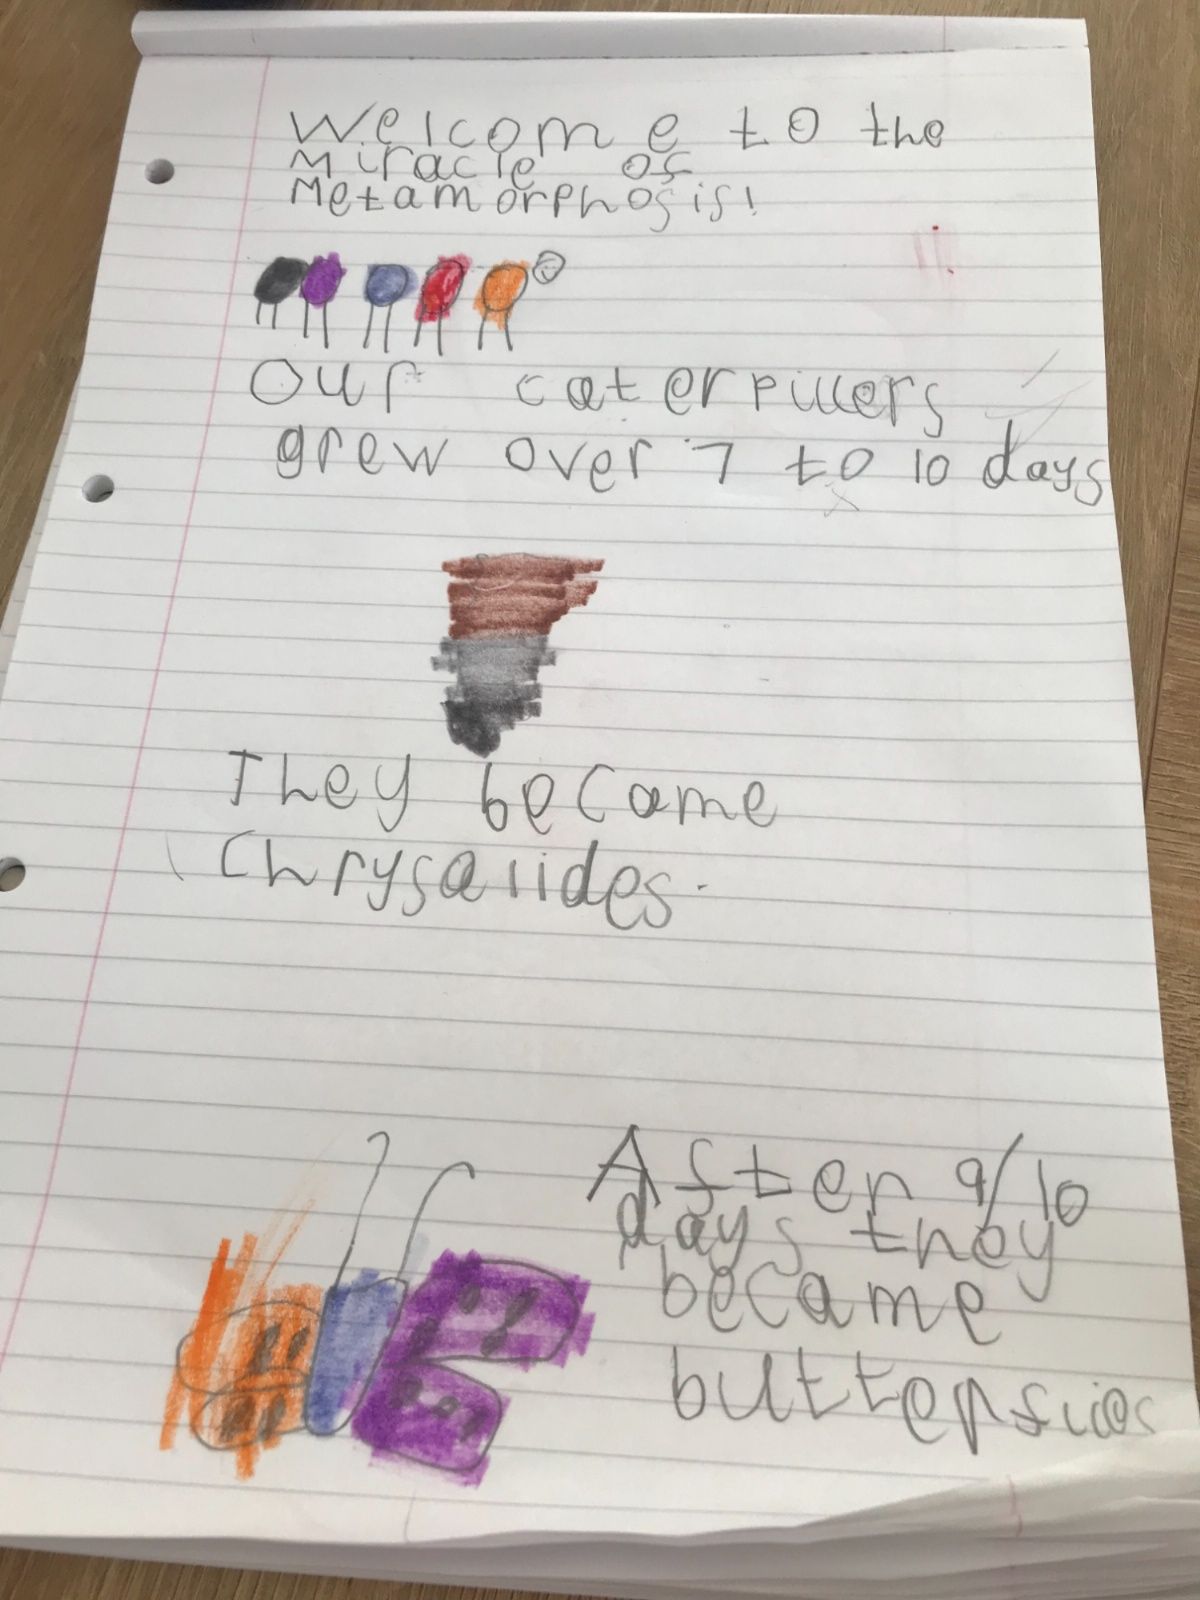 Welcome to the
Miracle of
Metamorphosis!
Our caterpillers
grew over 7 to 10 days
They became
Chrysalides.
After 9/10
days they
became
butterflies